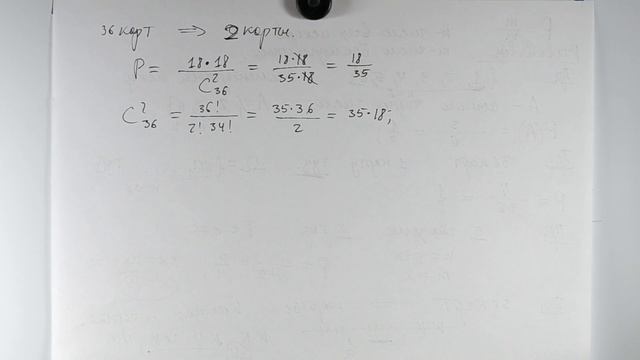 36 карт ⟹ 2 карты.
P = 18·18 / C²₃₆ = 18·18 / 35·18 = 18 / 35
C²₃₆ = 36! / 2! 34! = 35·36 / 2 = 35·18;